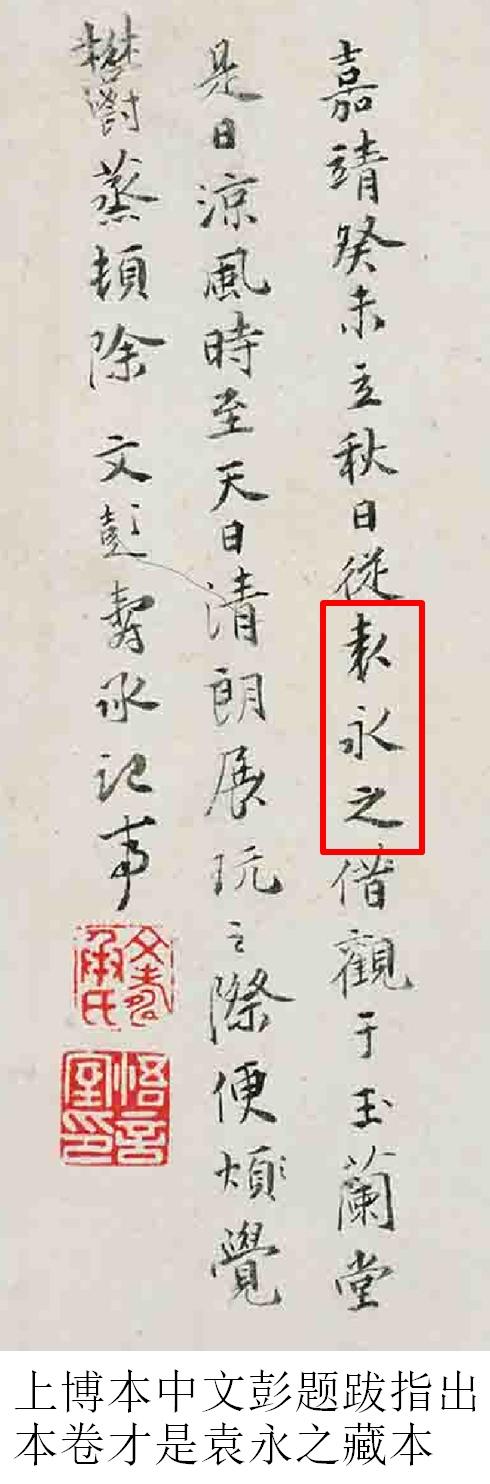 嘉靖癸未立秋日從袁永之借觀于玉蘭堂
是日涼風時至天日清朗展玩之際便煩覺
鬱蒸頓除 文彭壽承記事
文壽承氏
悟言室印
上博本中文彭题跋指出
本卷才是袁永之藏本